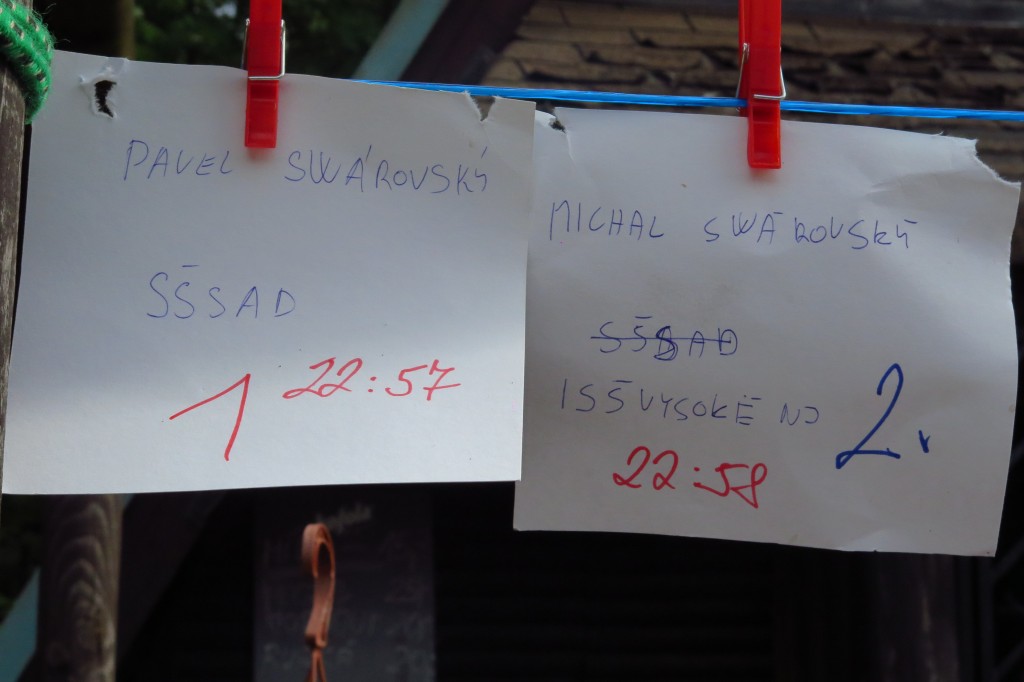 PAVEL SWÁROVSKÝ
SŠSAD
1 22:57
MICHAL SWÁROVSKÝ
SŠSAD
ISŠ VYSOKÉ NJ
2.
22:58